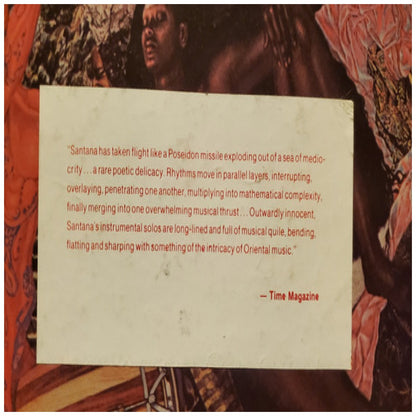 "Santana has taken flight like a Poseidon missile exploding out of a sea of medio-
crity . . . a rare poetic delicacy. Rhythms move in parallel layers, interrupting,
overlaying, penetrating one another, multiplying into mathematical complexity,
finally merging into one overwhelming musical thrust . . . Outwardly innocent,
Santana's instrumental solos are long-lined and full of musical quile, bending,
flatting and sharping with something of the intricacy of Oriental music."
— Time Magazine